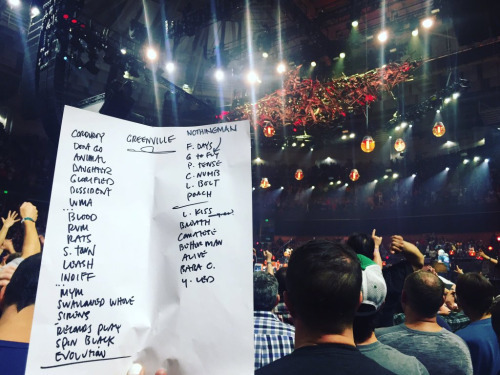 CORDUROY
DONT GO
ANIMAL
DAUGHTER
GLORIFIED
DISSIDENT
WMA
...
BLOOD
RVM
RATS
S. TOWN
LEASH
INDIFF
...
MYM
SWALLOWED WHOLE
SIRENS
...
RECORDS PLAY
SPIN BLACK
EVOLUTION
GREENVILLE
NOTHINGMAN
F. DAYS
G TO FLY
P. TENSE
C. NUMB
L. BOLT
PORCH
L. KISS
BREATH
COMATOSE
BETTERMAN
ALIVE
BABA O.
Y. LED